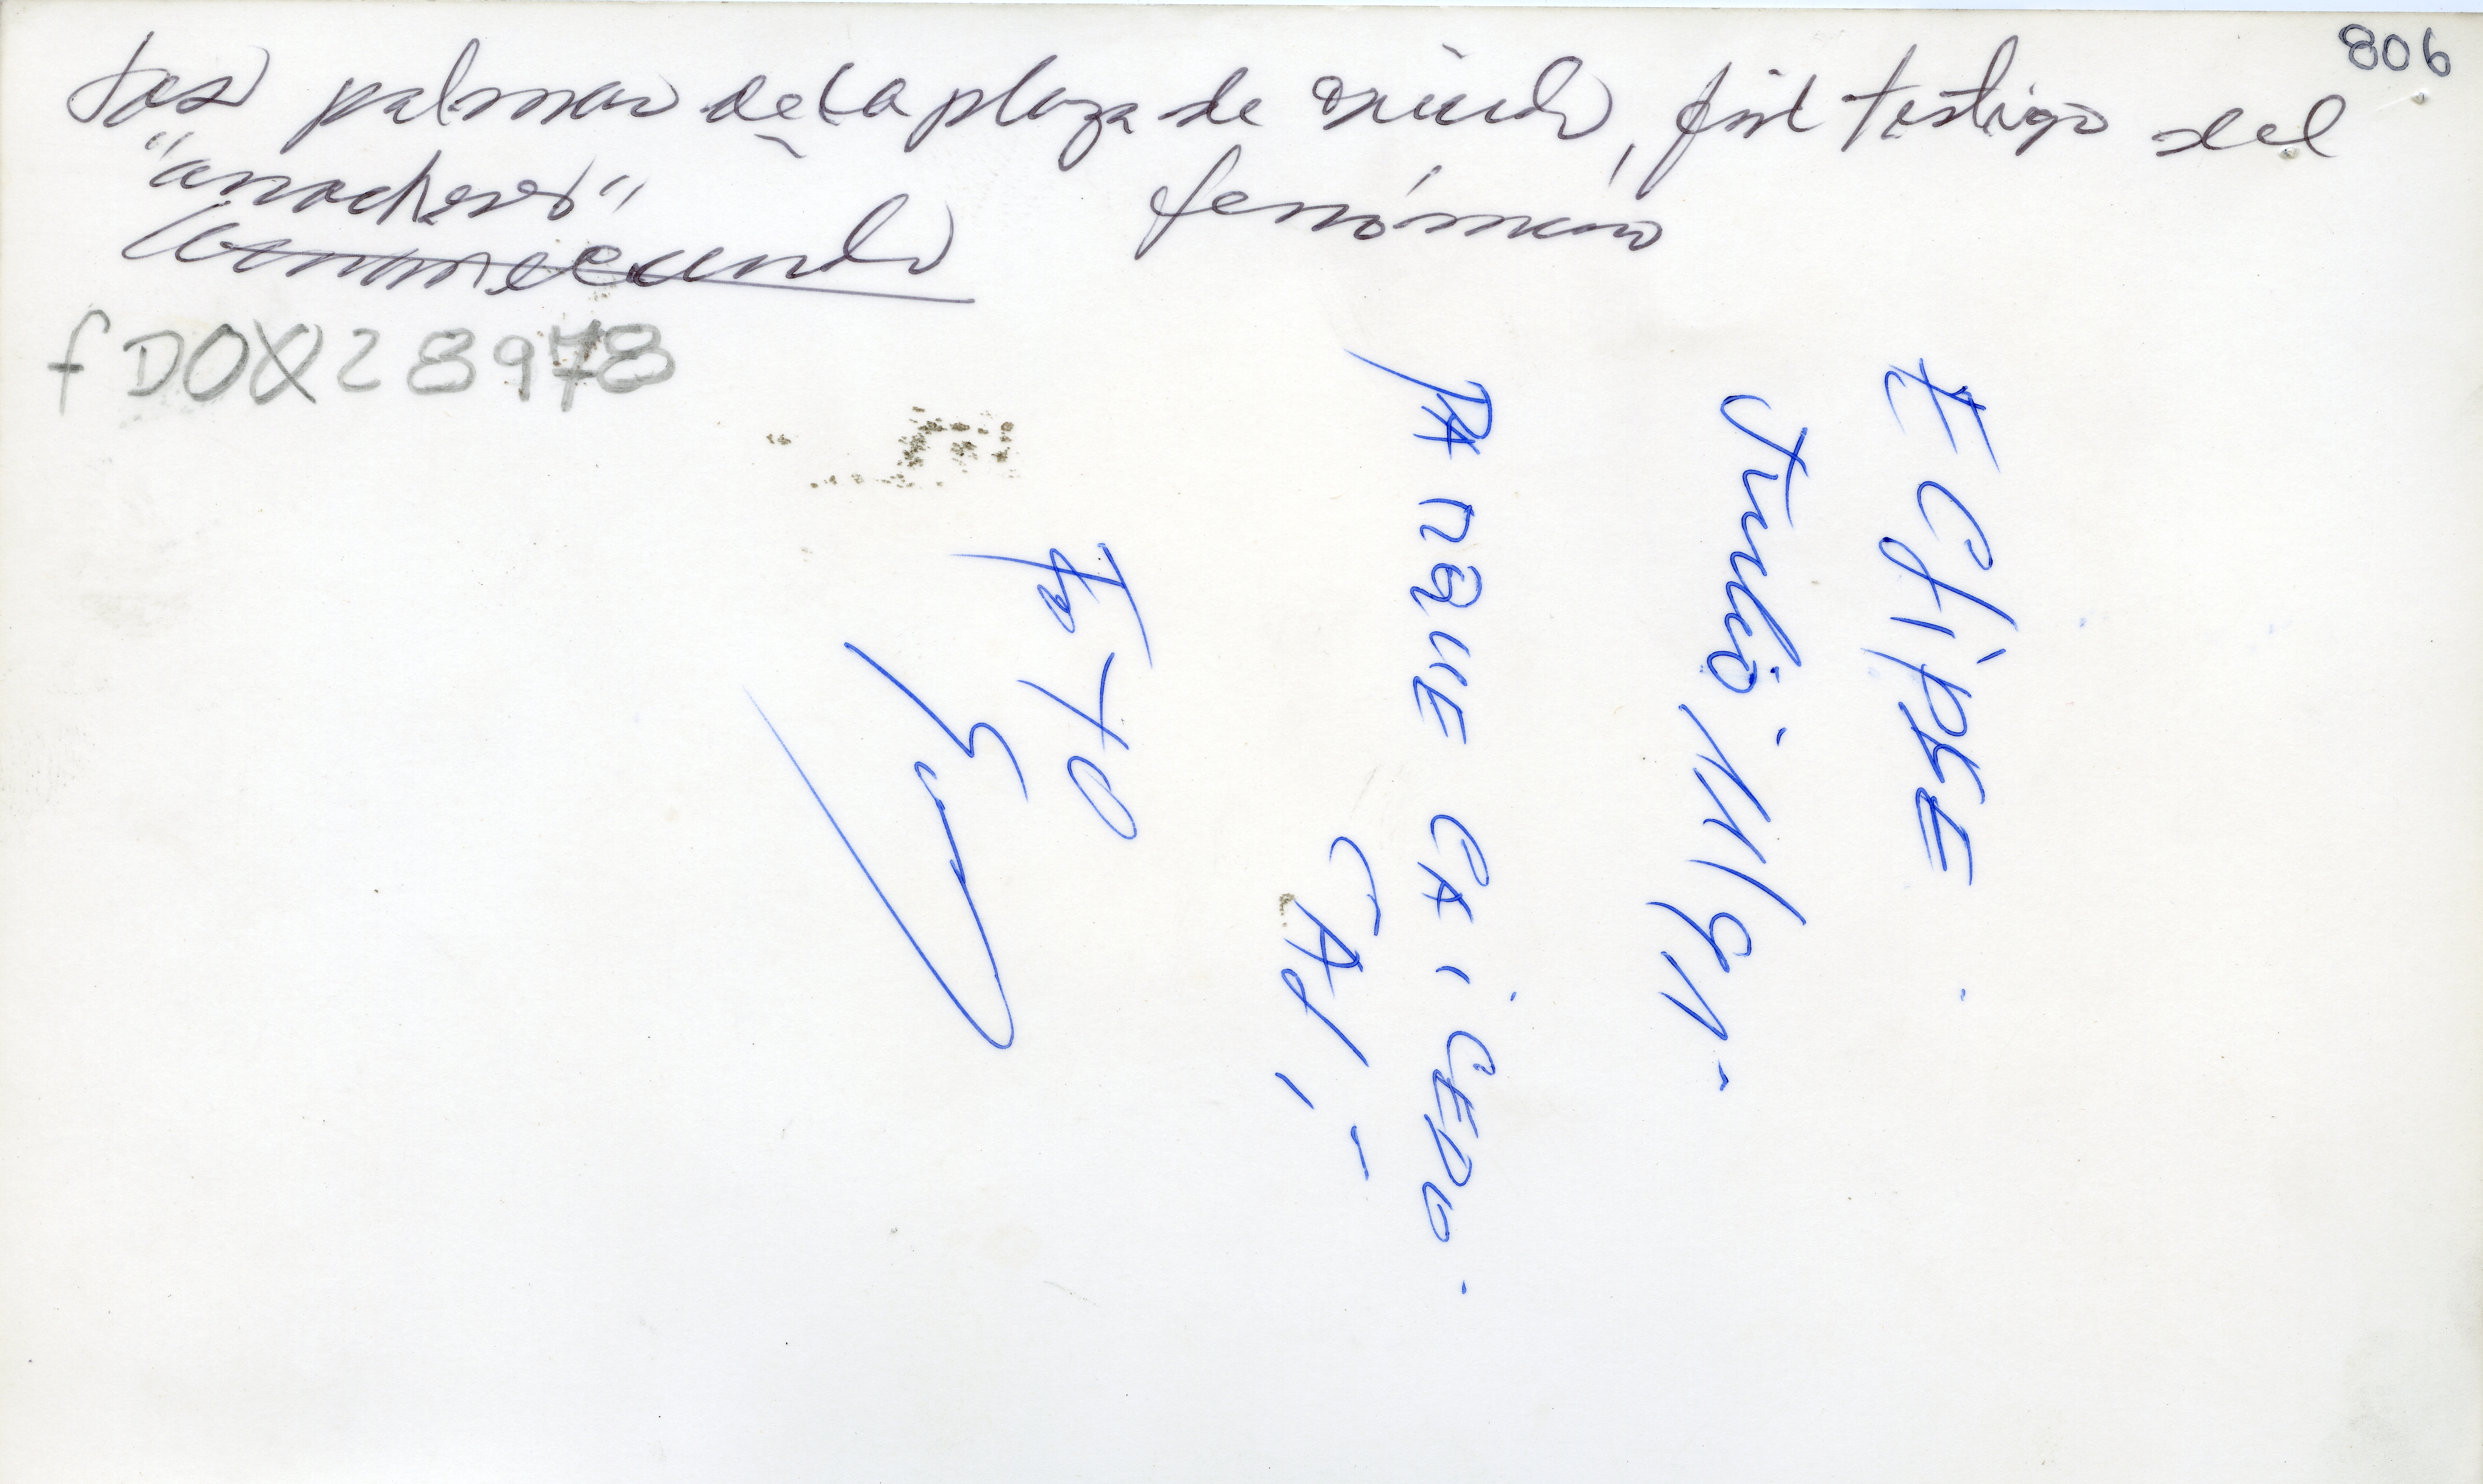 806
Las palmas de la plaza de Caicedo, fiel testigo del
"anochecer" fenómeno
fDOX28978
ECLIPSE
Julio 11/91-
PARQUE CAICEDO.
CALI-
FOTO